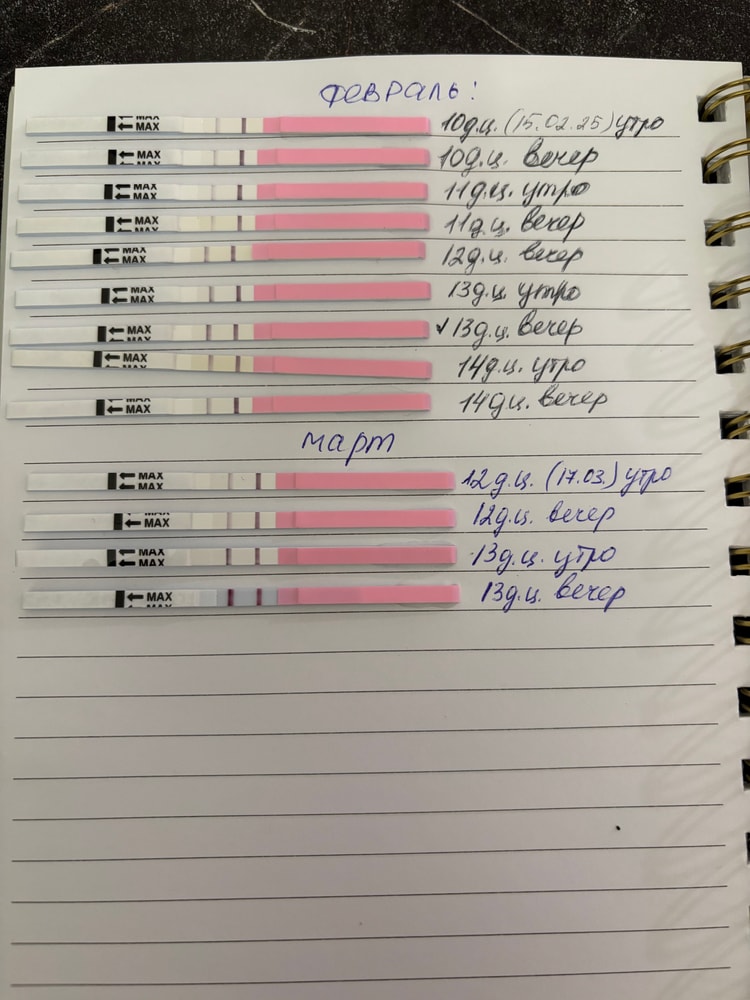 февраль:
MAX MAX 10д.ц. (15.02.25) утро
MAX MAX 10д.ц. вечер
MAX MAX 11д.ц. утро
MAX MAX 11д.ц. вечер
MAX MAX 12д.ц. вечер
MAX MAX 13д.ц. утро
MAX MAX ✓13д.ц. вечер
MAX MAX 14д.ц. утро
MAX MAX 14д.ц. вечер
март
MAX MAX 12д.ц. (17.03.) утро
MAX 12д.ц. вечер
MAX MAX 13д.ц. утро
MAX MAX 13д.ц. вечер